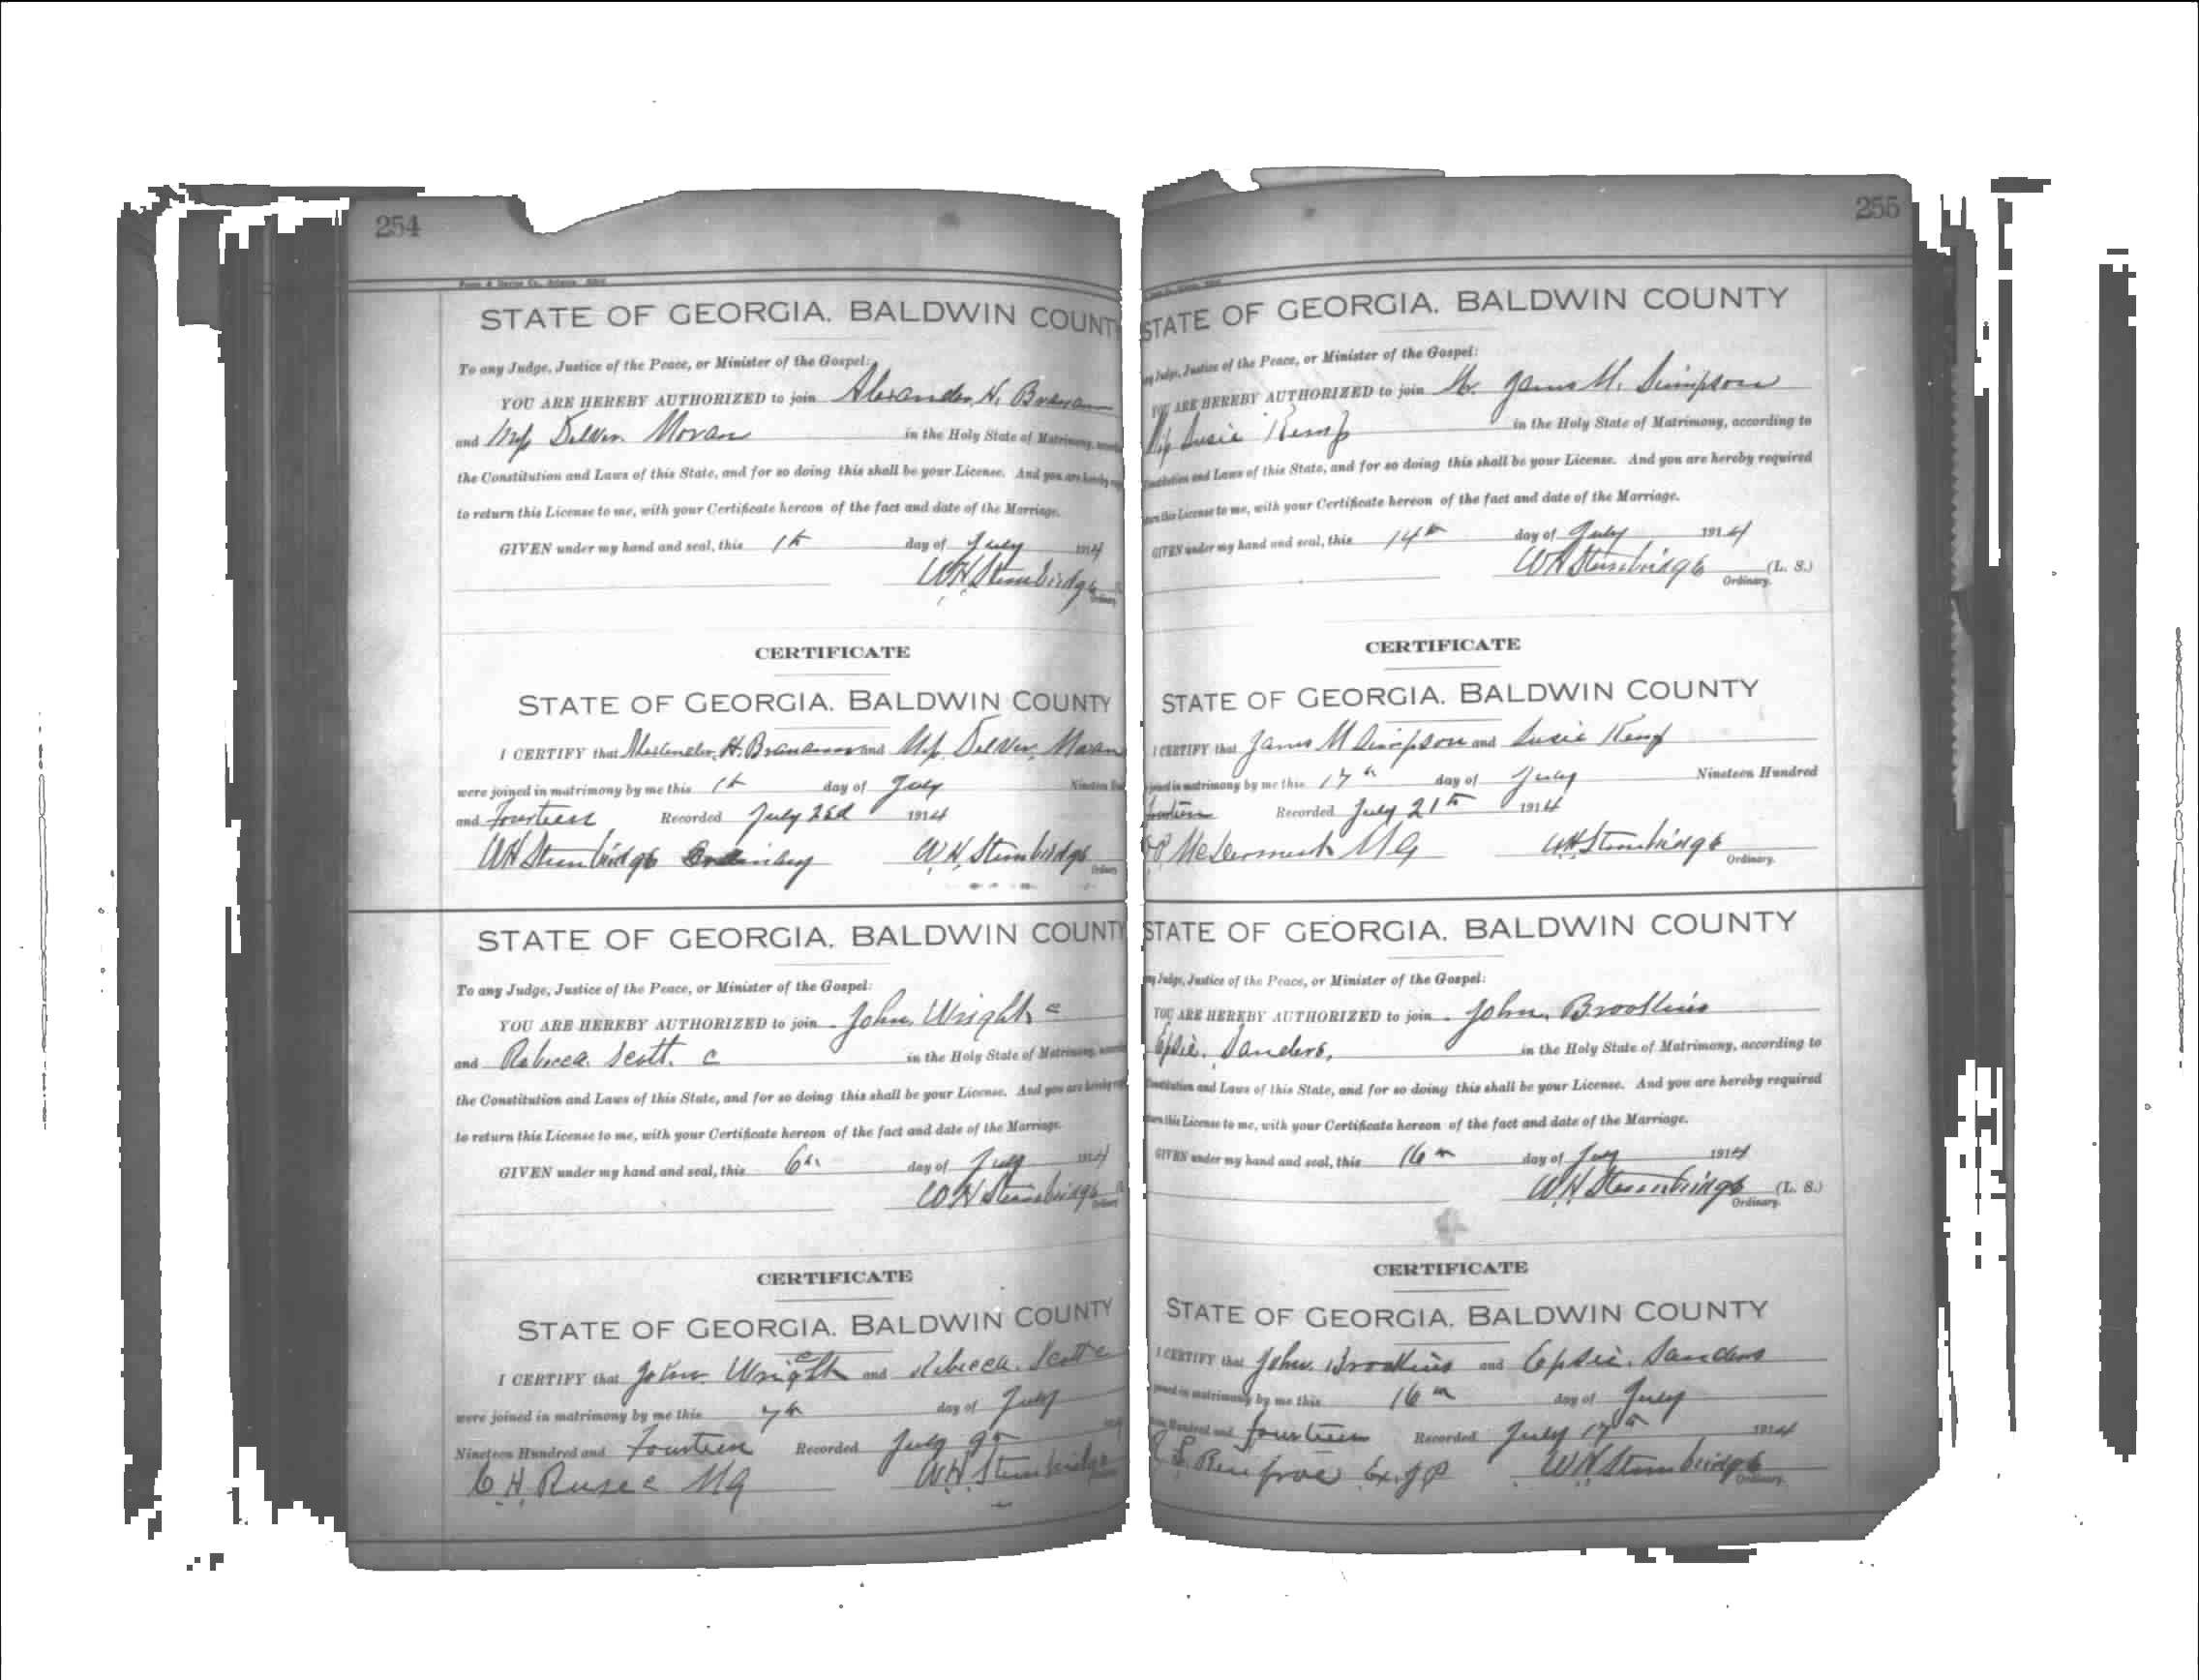 254
STATE OF GEORGIA. BALDWIN COUNT
To any Judge, Justice of the Peace, or Minister of the Gospel:
YOU ARE HEREBY AUTHORIZED to join Alexander. H.
and Moran in the Holy State of Matrimony,
the Constitution and Laws of this State, and for so doing this shall be your License. And you are hereby
to return this License to me, with your Certificate hereon of the fact and date of the Marriage.
GIVEN under my hand and seal, this 1st day of July 1914
W.H. Stembridge
Ordinary
CERTIFICATE
STATE OF GEORGIA. BALDWIN COUNTY
I CERTIFY that H. and Moran
were joined in matrimony by me this 1st day of July Nineteen
and Fourteen Recorded July 1914
WH Stembridge Ordinary W.H. Stembridge
Ordinary
STATE OF GEORGIA. BALDWIN COUNTY
To any Judge, Justice of the Peace, or Minister of the Gospel:
YOU ARE HEREBY AUTHORIZED to join John. Wright c
and Rebecca Scott. c in the Holy State of Matrimony,
the Constitution and Laws of this State, and for so doing this shall be your License. And you are hereby
to return this License to me, with your Certificate hereon of the fact and date of the Marriage.
GIVEN under my hand and seal, this 6th day of July 1914
W H Stembridge
Ordinary
CERTIFICATE
STATE OF GEORGIA. BALDWIN COUNTY
I CERTIFY that John. Wright c and Rebecca. Scott c
were joined in matrimony by me this 7th day of July
Nineteen Hundred and Fourteen Recorded July 9th
C.H. MG W.H. Stembridge
255
STATE OF GEORGIA. BALDWIN COUNTY
Judge, Justice of the Peace, or Minister of the Gospel:
YOU ARE HEREBY AUTHORIZED to join Mr. James M. Simpson
Susie Kemp in the Holy State of Matrimony, according to
Constitution and Laws of this State, and for so doing this shall be your License. And you are hereby required
this License to me, with your Certificate hereon of the fact and date of the Marriage.
GIVEN under my hand and seal, this 14th day of July 1914
WH Stembridge (L. S.)
Ordinary.
CERTIFICATE
STATE OF GEORGIA. BALDWIN COUNTY
I CERTIFY that James M Simpson and Susie Kemp
joined in matrimony by me this 17th day of July Nineteen Hundred
Recorded July 21st 1914
McDermont MG WH Stembridge
Ordinary.
STATE OF GEORGIA. BALDWIN COUNTY
Judge, Justice of the Peace, or Minister of the Gospel:
YOU ARE HEREBY AUTHORIZED to join John. Brookins
Epsie. Sanders, in the Holy State of Matrimony, according to
Constitution and Laws of this State, and for so doing this shall be your License. And you are hereby required
this License to me, with your Certificate hereon of the fact and date of the Marriage.
GIVEN under my hand and seal, this 16th day of July 1914
W.H Stembridge (L. S.)
Ordinary.
CERTIFICATE
STATE OF GEORGIA. BALDWIN COUNTY
I CERTIFY that John. Brookins and Epsie. Sanders
joined in matrimony by me this 16th day of July
Hundred and fourteen Recorded July 17th 1914
Renfroe Ex. J P W.H Stembridge
Ordinary.